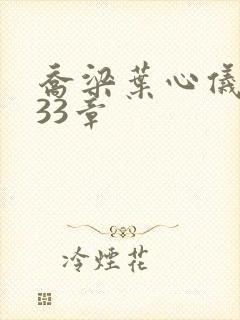 喬梁葉心儀
33章
冷煙花